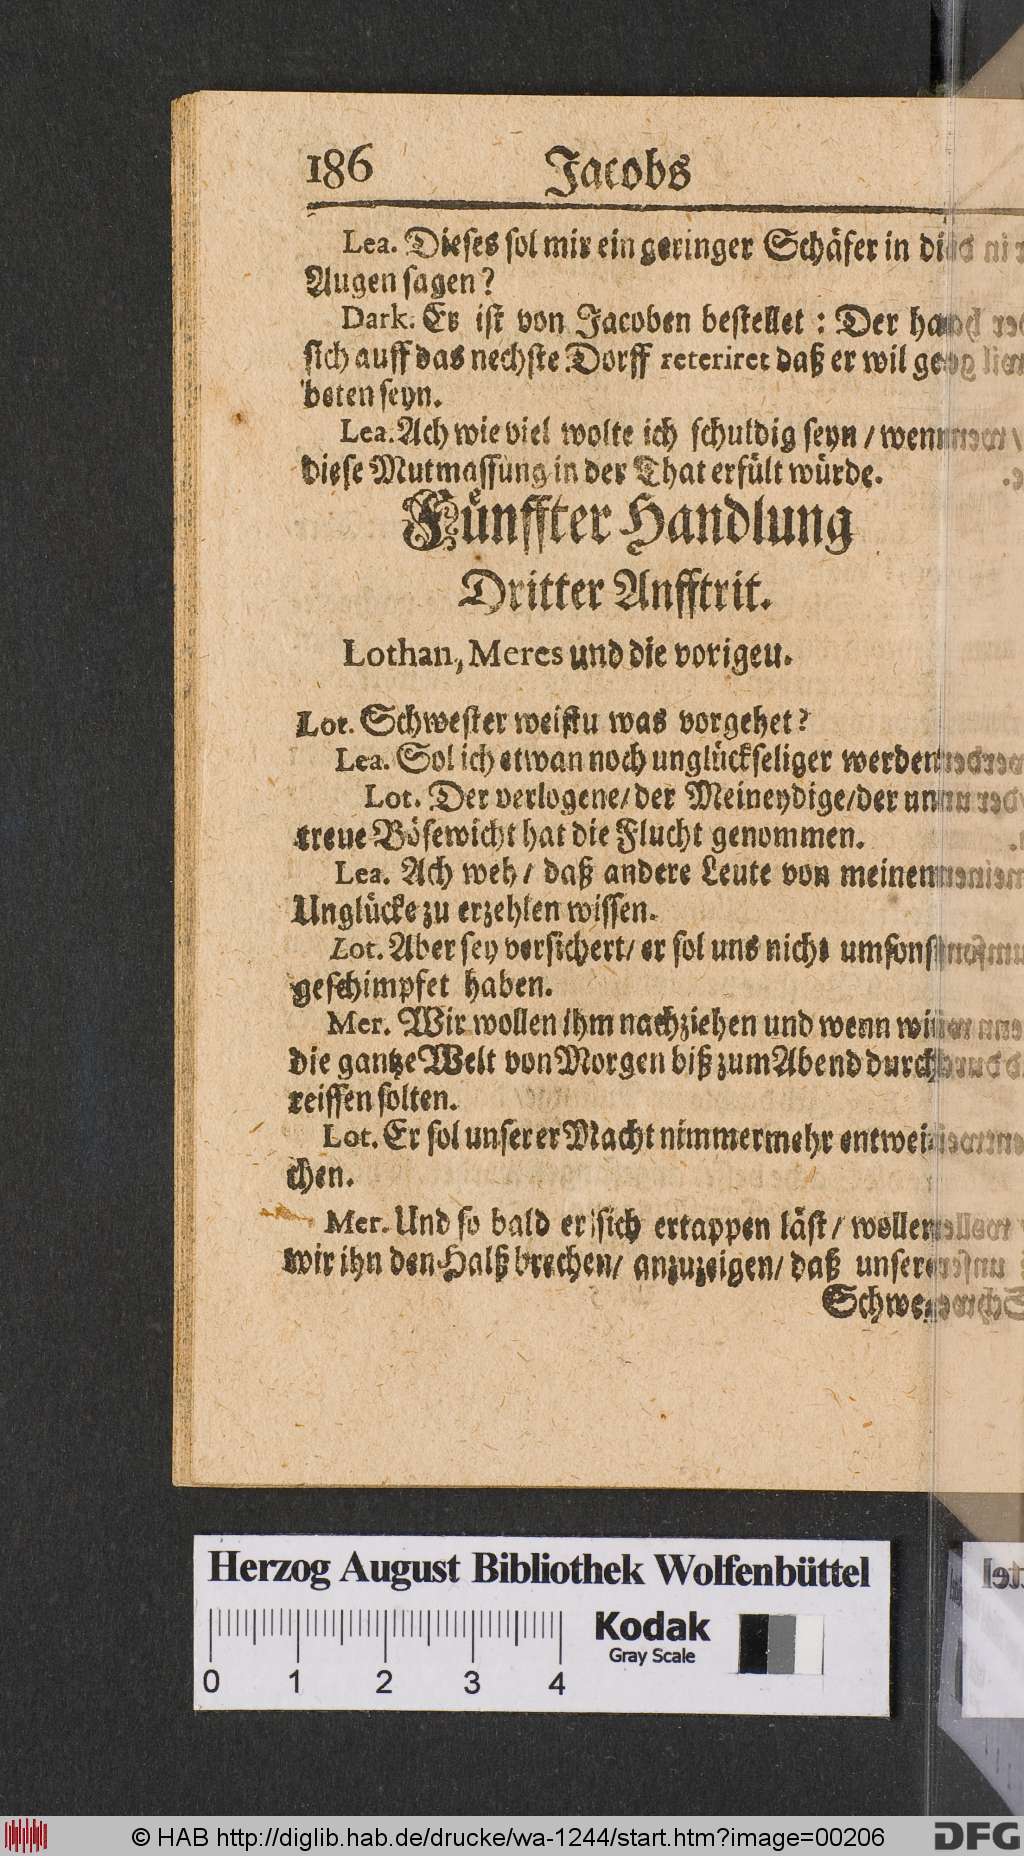 186 Jacobs
Lea. Dieses sol mir ein geringer Schäfer in die
Augen sagen?
Dark. Er ist von Jacoben bestellet : Der hat
sich auff das nechste Dorff reteriret daß er wil ge-
beten seyn.
Lea. Ach wie viel wolte ich schuldig seyn / wenn
diese Mutmassung in der That erfült würde.
Fünffter Handlung
Dritter Anfftrit.
Lothan, Meres und die vorigeu.
Lot. Schwester weistu was vorgehet?
Lea. Sol ich etwan noch unglückseliger werden
Lot. Der verlogene/ der Meineydige/ der un-
treue Bösewicht hat die Flucht genommen.
Lea. Ach weh / daß andere Leute von meinem
Unglücke zu erzehlen wissen.
Lot. Aber sey versichert/ er sol uns nicht umsonst
geschimpfet haben.
Mer. Wir wollen ihm nachziehen und wenn wir
die gantze Welt von Morgen biß zum Abend durch-
reissen solten.
Lot. Er sol unserer Macht nimmermehr entwei-
chen.
Mer. Und so bald er sich ertappen läst / wollen
wir ihn den Halß brechen/ anzuzeigen/ daß unsere
Schwe-
Herzog August Bibliothek Wolfenbüttel
Kodak
Gray Scale
0 1 2 3 4
© HAB http://diglib.hab.de/drucke/wa-1244/start.htm?image=00206
DFG